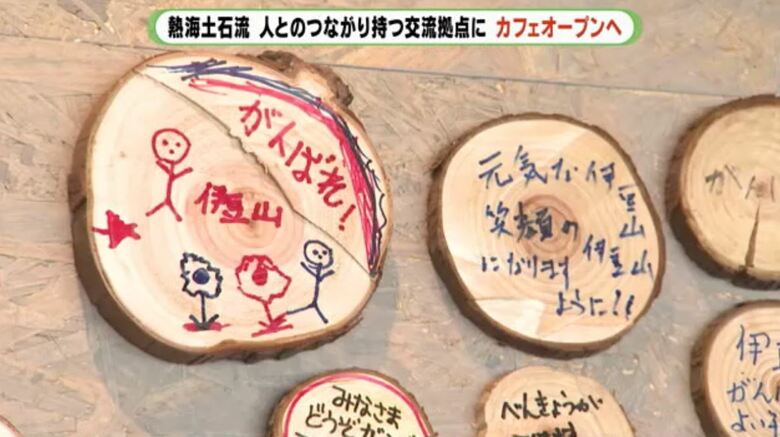 熱海土石流 人とのつながり持つ交流拠点に カフェオープンへ
がんばれ!
伊豆山
元気な伊豆山
笑顔の伊豆山
になります
ように!!
がん
みなさま
どうぞ
べんきょうが
伊
がん
よい